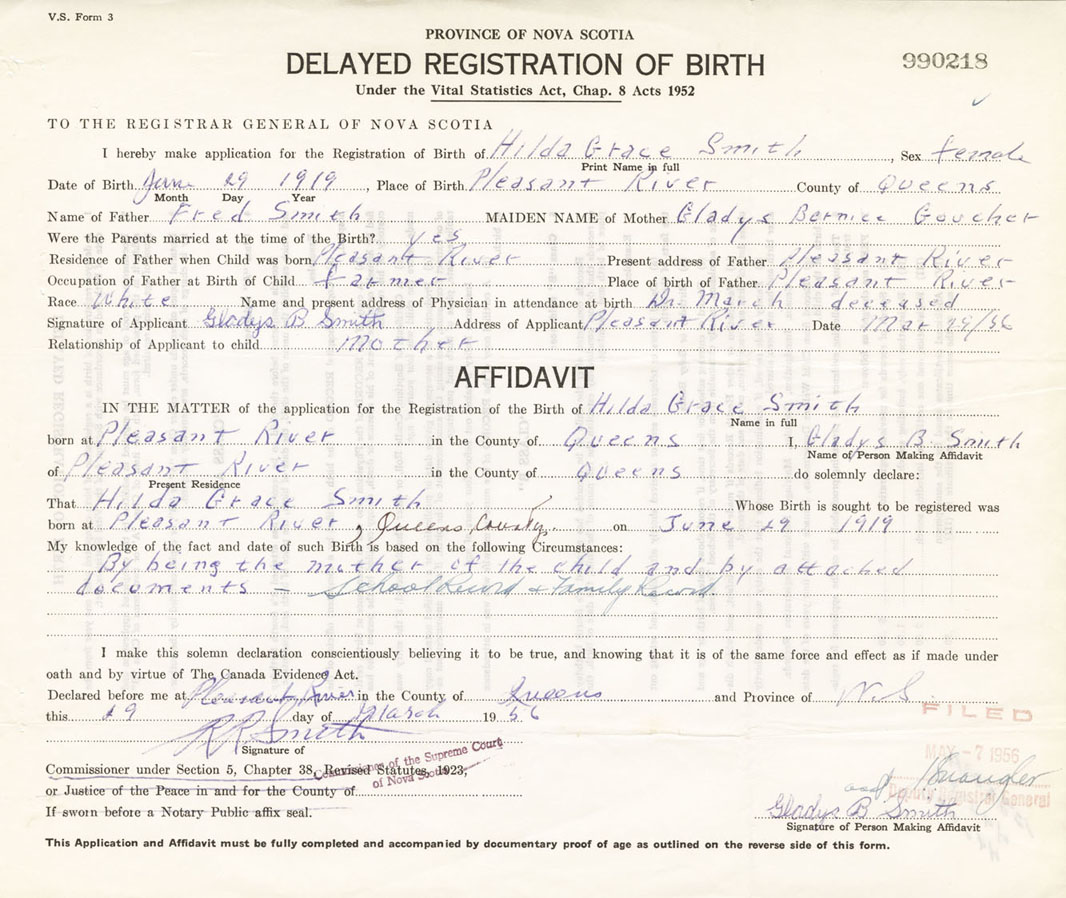 V.S. Form 3
PROVINCE OF NOVA SCOTIA
DELAYED REGISTRATION OF BIRTH
990218
Under the Vital Statistics Act, Chap. 8 Acts 1952
TO THE REGISTRAR GENERAL OF NOVA SCOTIA
I hereby make application for the Registration of Birth of Hilda Grace Smith, Sex female
Print Name in full
Date of Birth June 29 1919, Place of Birth Pleasant River County of Queens
Month Day Year
Name of Father Fred Smith MAIDEN NAME of Mother Gladys Bernice Goucher
Were the Parents married at the time of the Birth? yes
Residence of Father when Child was born Pleasant River Present address of Father Pleasant River
Occupation of Father at Birth of Child farmer Place of birth of Father Pleasant River
Race White Name and present address of Physician in attendance at birth Dr. March deceased
Signature of Applicant Gladys B Smith Address of Applicant Pleasant River Date Mar 29/56
Relationship of Applicant to child Mother
AFFIDAVIT
IN THE MATTER of the application for the Registration of the Birth of Hilda Grace Smith
Name in full
born at Pleasant River in the County of Queens I, Gladys B. Smith
Name of Person Making Affidavit
of Pleasant River in the County of Queens do solemnly declare:
Present Residence
That Hilda Grace Smith Whose Birth is sought to be registered was
born at Pleasant River, Queens County. on June 29 1919
My knowledge of the fact and date of such Birth is based on the following Circumstances:
By being the mother of the child and by attached
documents – School Record & Family Record.
I make this solemn declaration conscientiously believing it to be true, and knowing that it is of the same force and effect as if made under
oath and by virtue of The Canada Evidence Act.
Declared before me at Pleasant River in the County of Queens and Province of N.S.
this 29 day of March 1956
FILED
R R Smith
Signature of
MAY -7 1956
Commissioner under Section 5, Chapter 38, Revised Statutes, 1923;
Commissioner of the Supreme Court
of Nova Scotia
or Justice of the Peace in and for the County of
Deputy Registrar General
If sworn before a Notary Public affix seal.
Gladys B Smith
Signature of Person Making Affidavit
This Application and Affidavit must be fully completed and accompanied by documentary proof of age as outlined on the reverse side of this form.